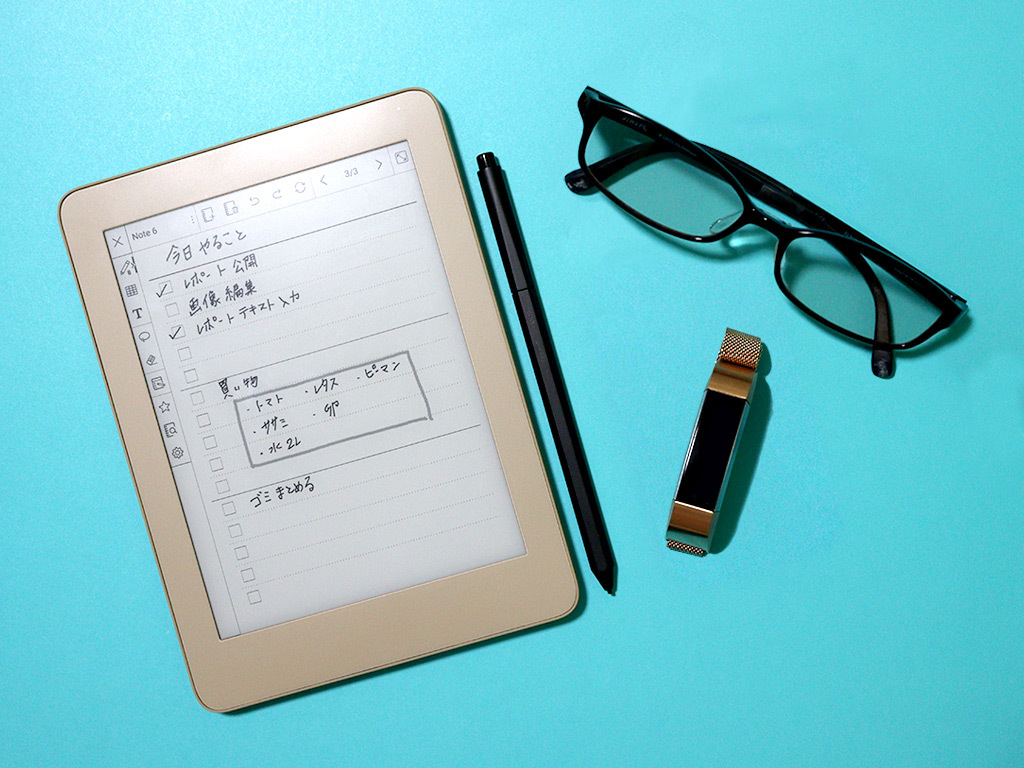 Note 6
3/3
T
今日やること
レポート公開
画像編集
レポートテキスト入力
買い物
・トマト ・レタス ・ピーマン
・ササミ ・卵
・水2L
ゴミまとめる